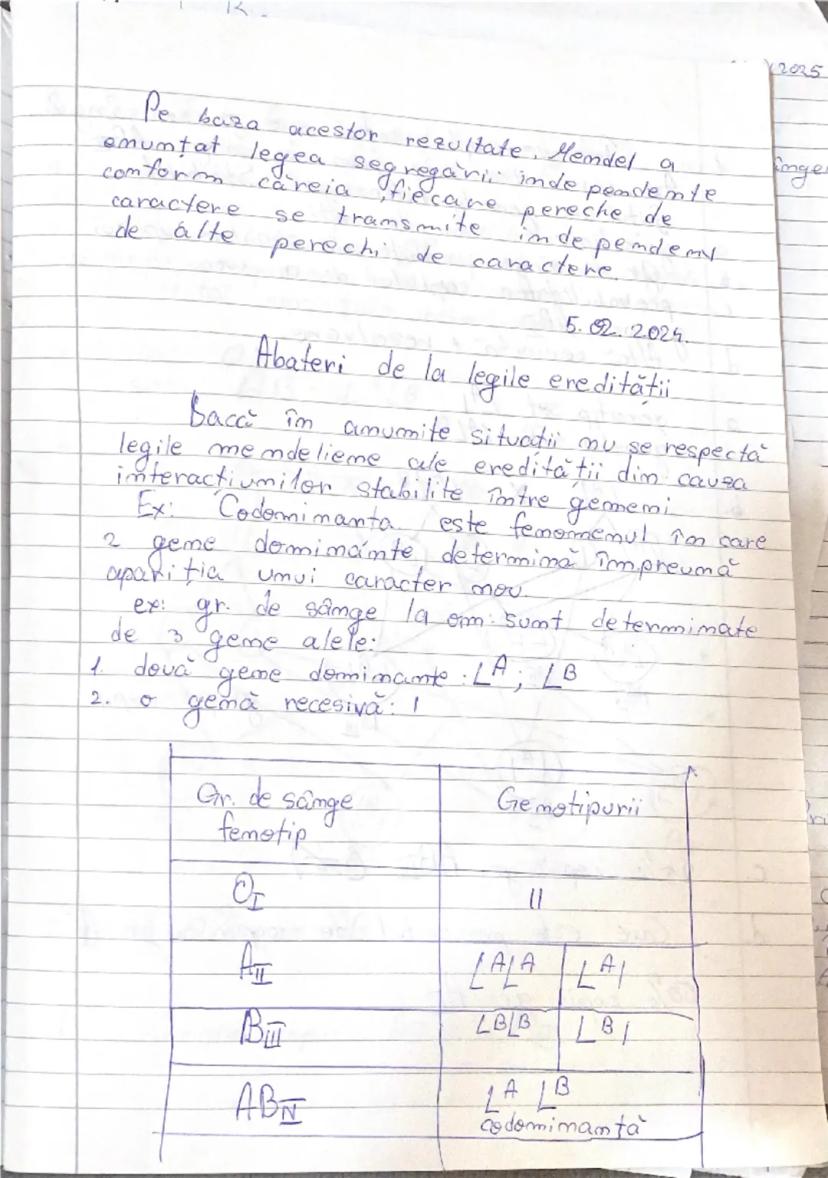 2025
Pe baza acestor rezultate, Mendel a
enunțat legea segregării independente
conform căreia, fiecare pereche de
caractere se transmite independent
de alte perechi de caractere.
5.02.2024.
Abateri de la legile eredității
Dacă în anumite situații nu se respectă
legile mendeliene ale eredității din cauza
interacțiunilor stabilite între genemi
Ex: Codominanta este fenomenul în care
2 gene dominante determină împreună
apariția unui caracter nou.
ex: gr. de sânge la om sunt determinate
de 3 gene alele:
1. două gene dominante: L^A; L^B
2. o genă recesivă: l
Gr. de sânge Genotipurii
fenotip
O_I ll
A_II L^A L^A L^A l
B_III L^B L^B L^B l
AB_IV L^A L^B
codominanță